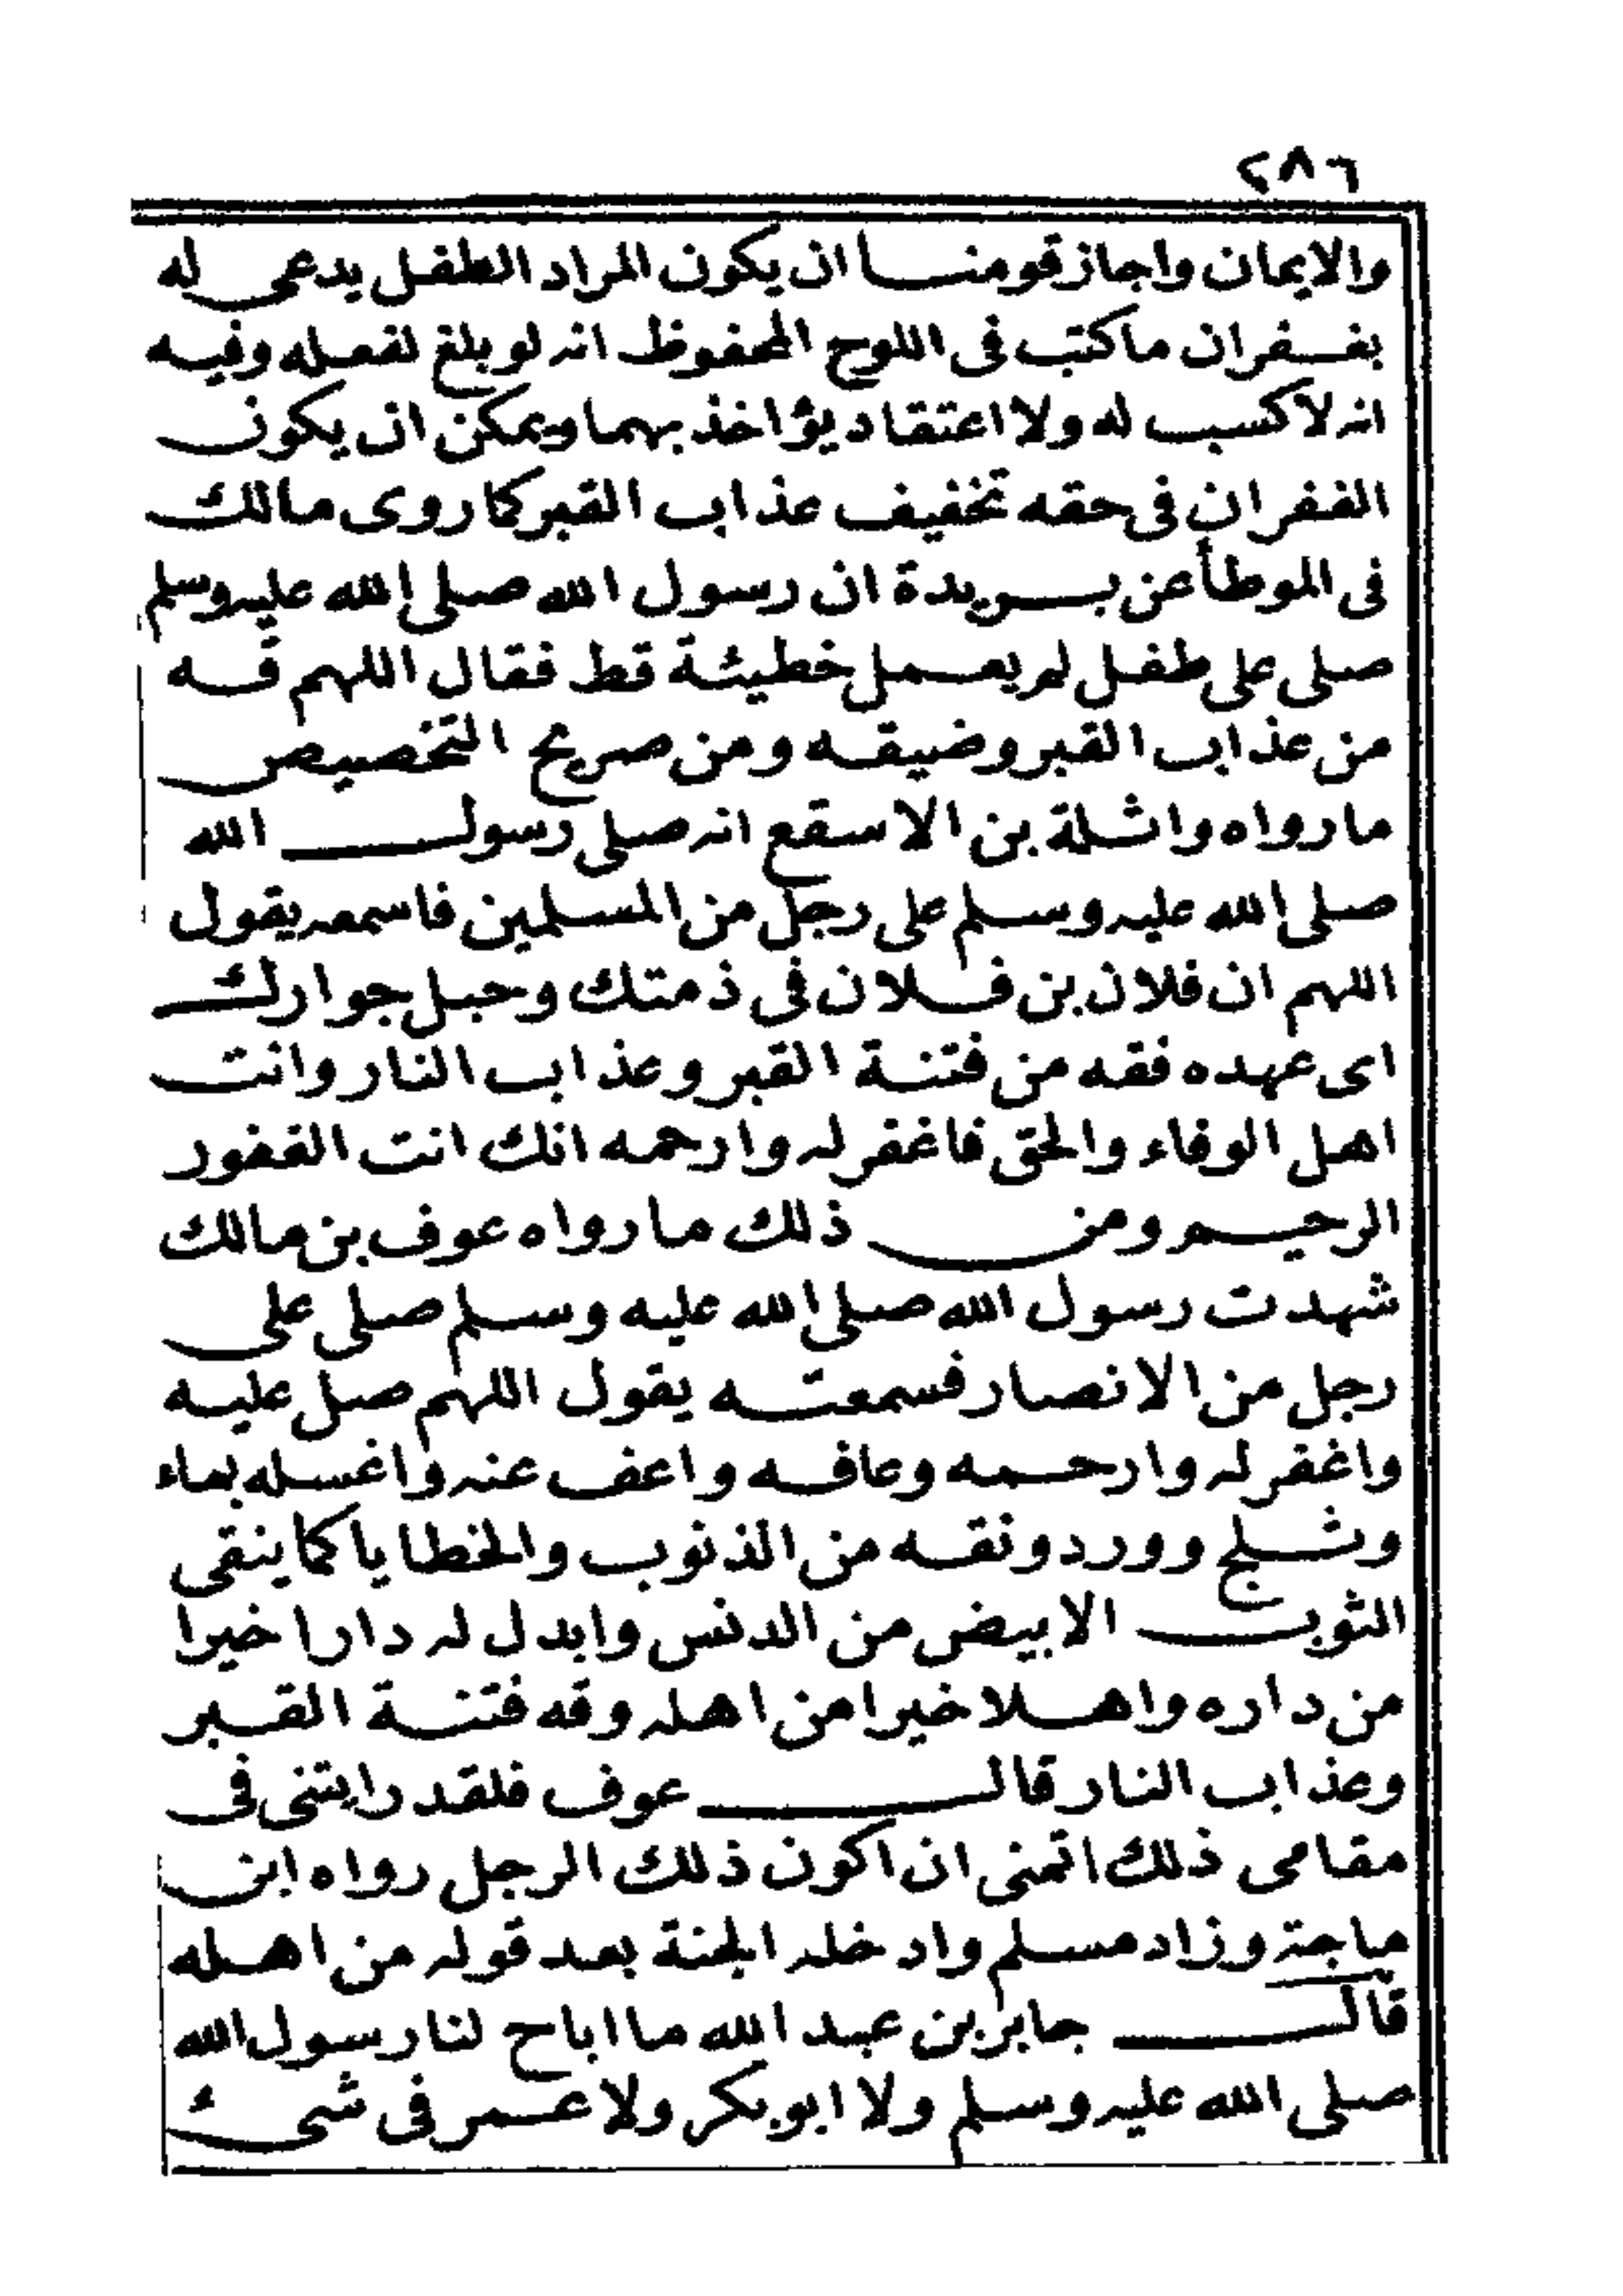 ٢٨٦
والايمان واجاز قومنا ان يكون المراد الطفل يدعى له
بغفران ما كتب فى اللوح المحفوظ انه لو بلغ لفعله وفيه
انه لا كسب له ولا اعتقاد يؤاخذ بهما ويمكن ان يكون
الغفران فى حقه تخفيف عذاب القبر كما روى مالك
فى الموطأ عن بريدة ان رسول الله صلى الله عليه وسلم
صلى على طفل لم يعمل خطيئة قط فقال اللهم قه
من عذاب القبر وضيقه ومن صريح التخصيص
ما رواه واثلة بن الاسقع انه صلى رسول الله
صلى الله عليه وسلم على رجل من المسلمين فاسمعه يقول
اللهم ان فلان بن فلان فى ذمتك وحبل جوارك
اى عهده فقه من فتنة القبر وعذاب النار وانت
اهل الوفاء والحق فاغفر له وارحمه انك انت الغفور
الرحيم ومن ذلك ما رواه عوف بن مالك
شهدت رسول الله صلى الله عليه وسلم صلى على
رجل من الانصار فسمعته يقول اللهم صل عليه
واغفر له وارحمه وعافه واعف عنه واغسله بماء
وثلج وورد ونقه من الذنوب والخطايا كما ينقى
الثوب الابيض من الدنس وابدل له دارا خيرا
من داره واهلا خيرا من اهله وقه فتنة القبر
وعذاب النار قال عوف فلقد رايتنى فى
مقامى ذلك اتمنى ان اكون ذلك الرجل رواه ابن
ماجة وزاد مسلم وادخله الجنة بعد قوله من اهله
قال جابر بن عبد الله ما اباح لنا رسول الله
صلى الله عليه وسلم ولا ابو بكر ولا عمر فى شىء